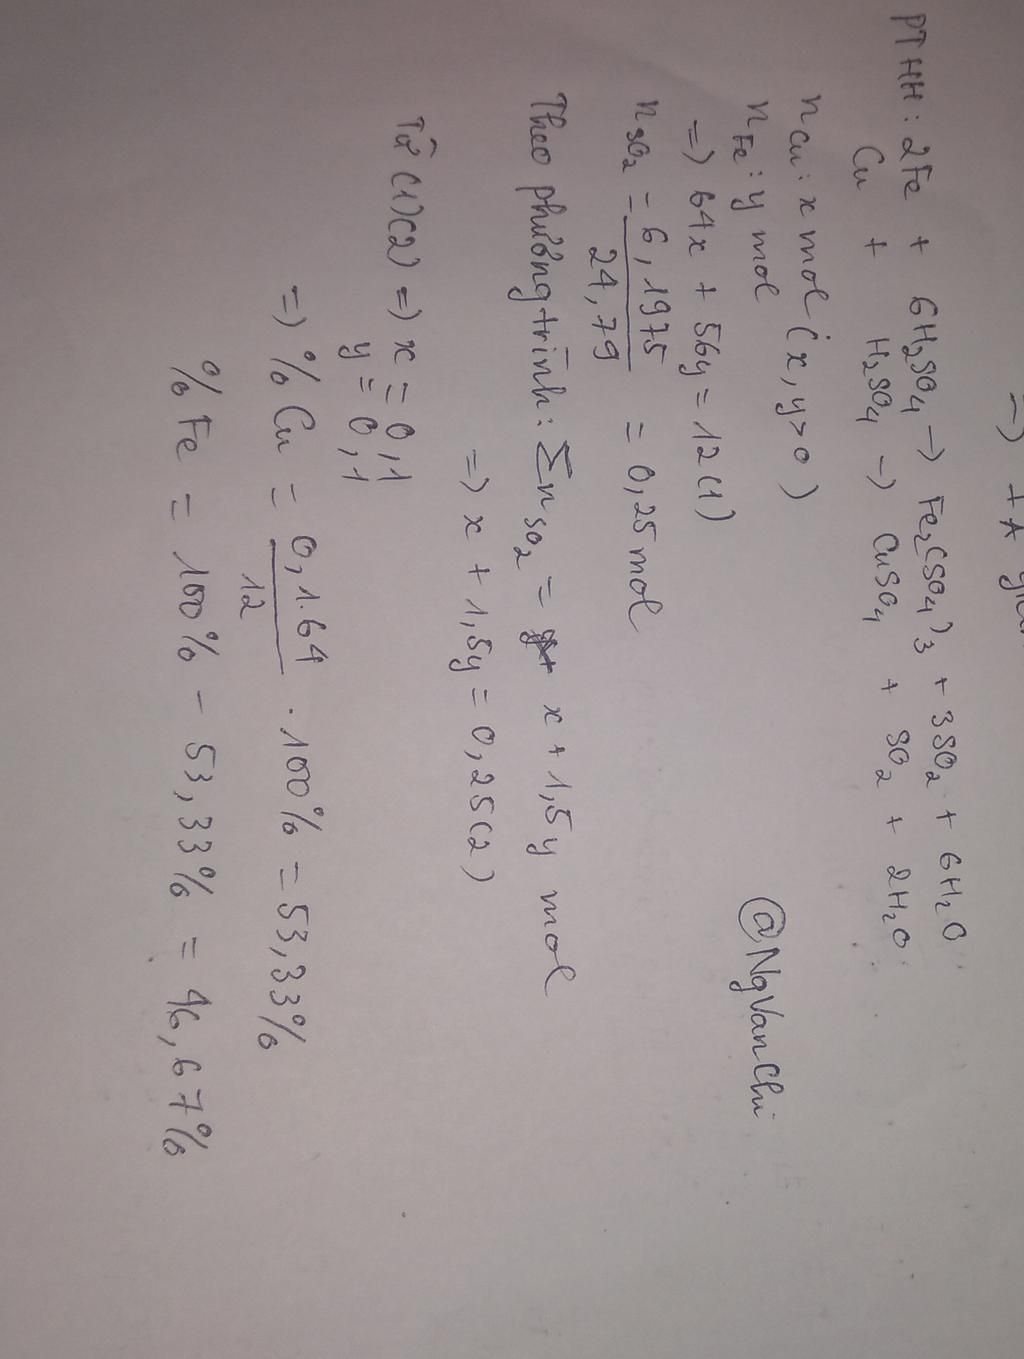 =) + A
PTHH: 2Fe + 6H₂SO₄ -) Fe₂(SO₄)₃ + 3SO₂ + 6H₂O
Cu + H₂SO₄ -) CuSO₄ + SO₂ + 2H₂O
n Cu: x mol (x, y>0)
n Fe: y mol
=) 64x + 56y = 12 (1)
@NgVanChi
n SO₂ = 6,1975/24,79 = 0,25 mol
Theo phương trình: Σn SO₂ = x + 1,5y mol
=) x + 1,5y = 0,25 (2)
Từ (1)(2) =) x = 0,1
y = 0,1
=) % Cu = 0,1.64/12 . 100% = 53,33%
% Fe = 100% - 53,33% = 46,67%